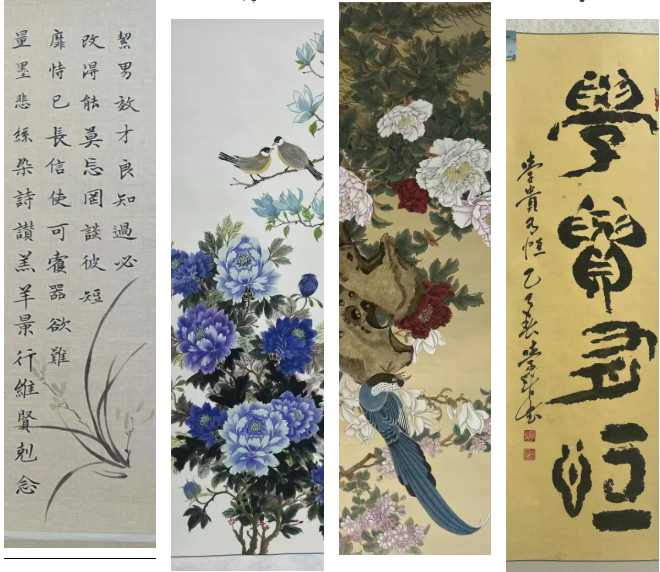 絜男效才良知過必
改得能莫忘罔談彼短
靡恃己長信使可覆器欲難
量墨悲絲染詩讚羔羊景行維賢剋念
學貴有恒
學貴有恒 乙巳春